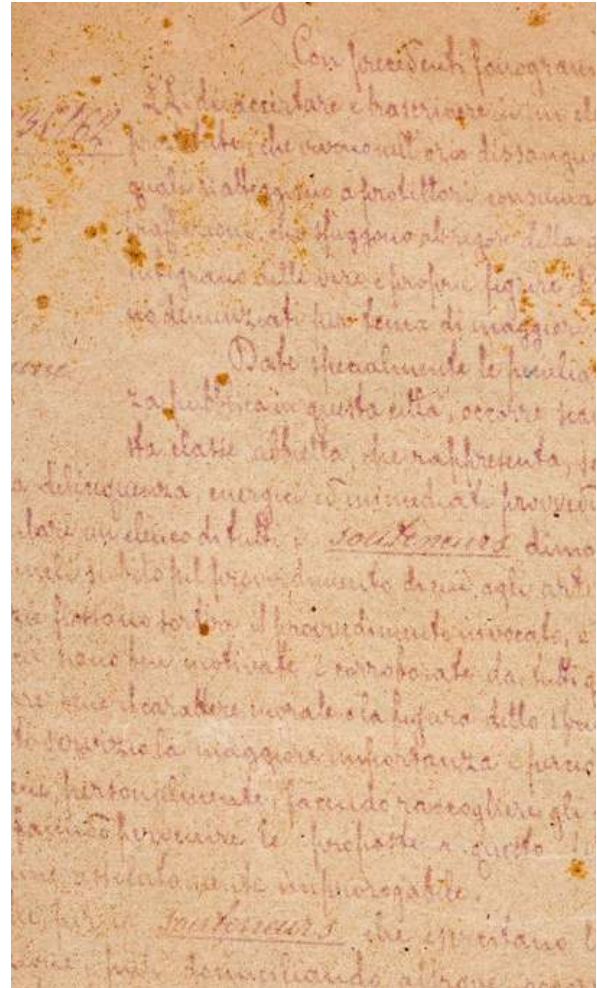 Con precedenti fonogrammi
LL. di accertare e trascrivere in un el
prostitute, che vivono nell'ozio dissangu
quali si atteggiano a protettori consuma
che sfuggono al rigore della
integrano delle vere e proprie figure d
no denunziati per tema di maggiori
Date specialmente le peculia
za pubblica in questa città, occorre
sta classe abbietta, che rappresenta, se
a delinquenza, energici ed immediati provvedi
lare un elenco di tutti i souteneurs dimo
subito pel provvedimento di cui agli arti
possano sortire il provvedimento invocato, è
siano ben motivate e corroborate da tutti q
bene il carattere morale e la figura dello sfru
to servizio la maggiore importanza e perciò
personalmente, facendo raccogliere gli
facendo pervenire le proposte a questo
assolutamente improrogabile.
souteneurs che esercitano l
pur domiciliando altrove